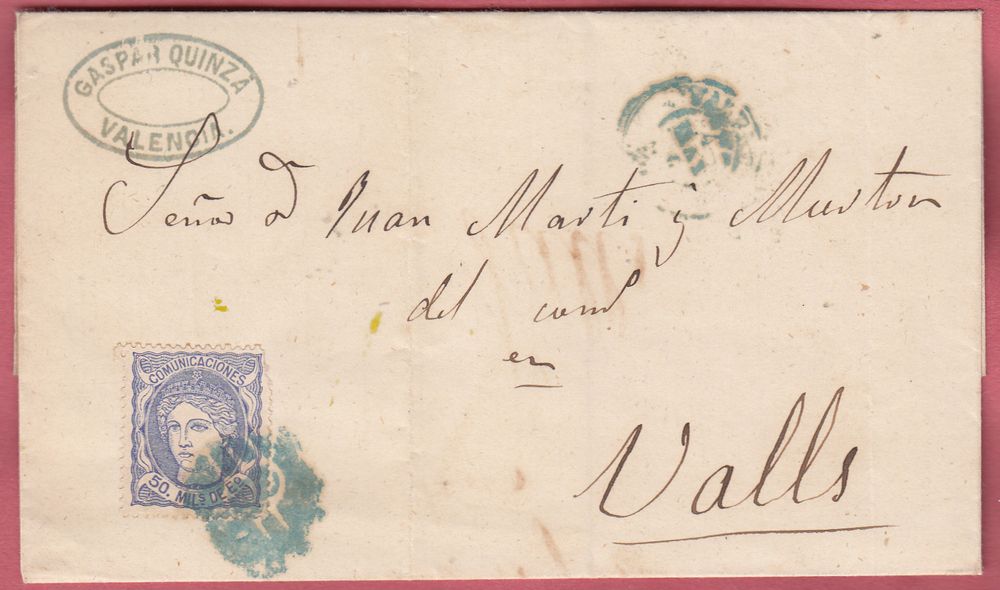 GASPAR QUINZÁ
VALENCIA.
Señor Dn Juan Marti y
del comº
en
Valls
COMUNICACIONES
50. MILS DE Eº